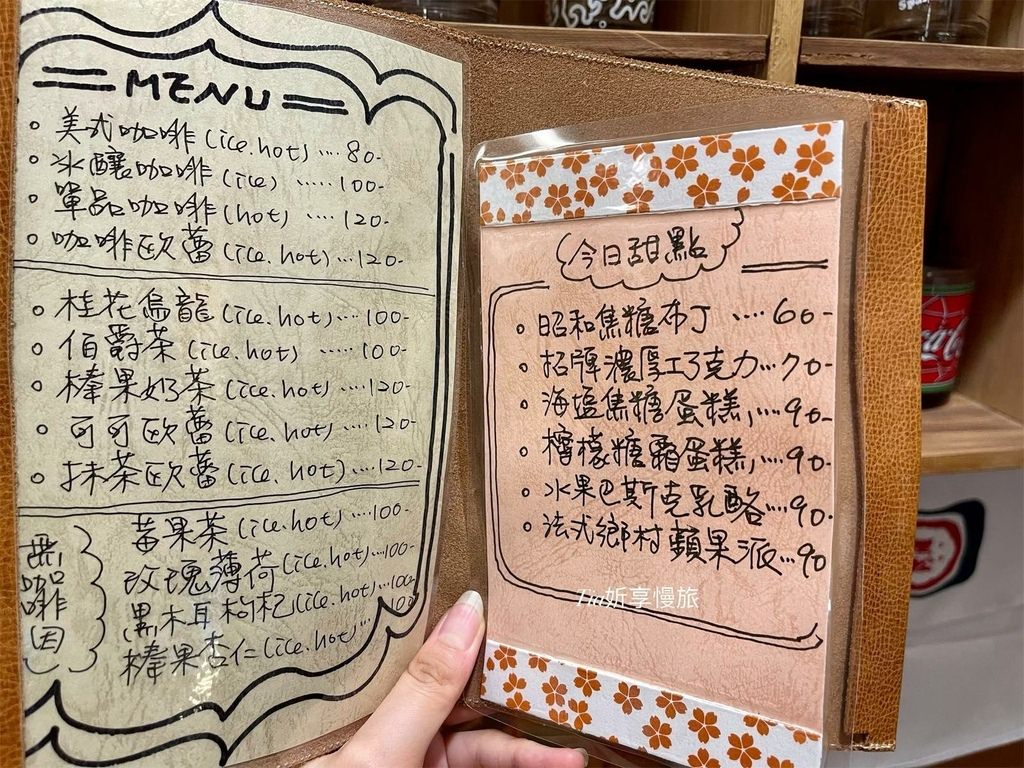 MENU
美式咖啡(ice.hot)....80-
冰釀咖啡(ice).....100-
單品咖啡(hot)....120-
咖啡歐蕾(ice.hot)...120-
桂花烏龍(ice.hot)....100-
伯爵茶(ice.hot)....100-
榛果奶茶(ice.hot)....120-
可可歐蕾(ice.hot)....120-
抹茶歐蕾(ice.hot)....120-
無咖啡因
蕃果茶(ice.hot)....100-
玫瑰薄荷(ice.hot)...100-
黑木耳枸杞(ice.hot)...100-
榛果杏仁(ice.hot)...100
今日甜點
昭和焦糖布丁....60-
招牌濃厚巧克力...70-
海塩焦糖蛋糕....90-
檸檬糖霜蛋糕....90-
水果巴斯克乳酪...90-
法式鄉村蘋果派...90
Tia妡享慢旅